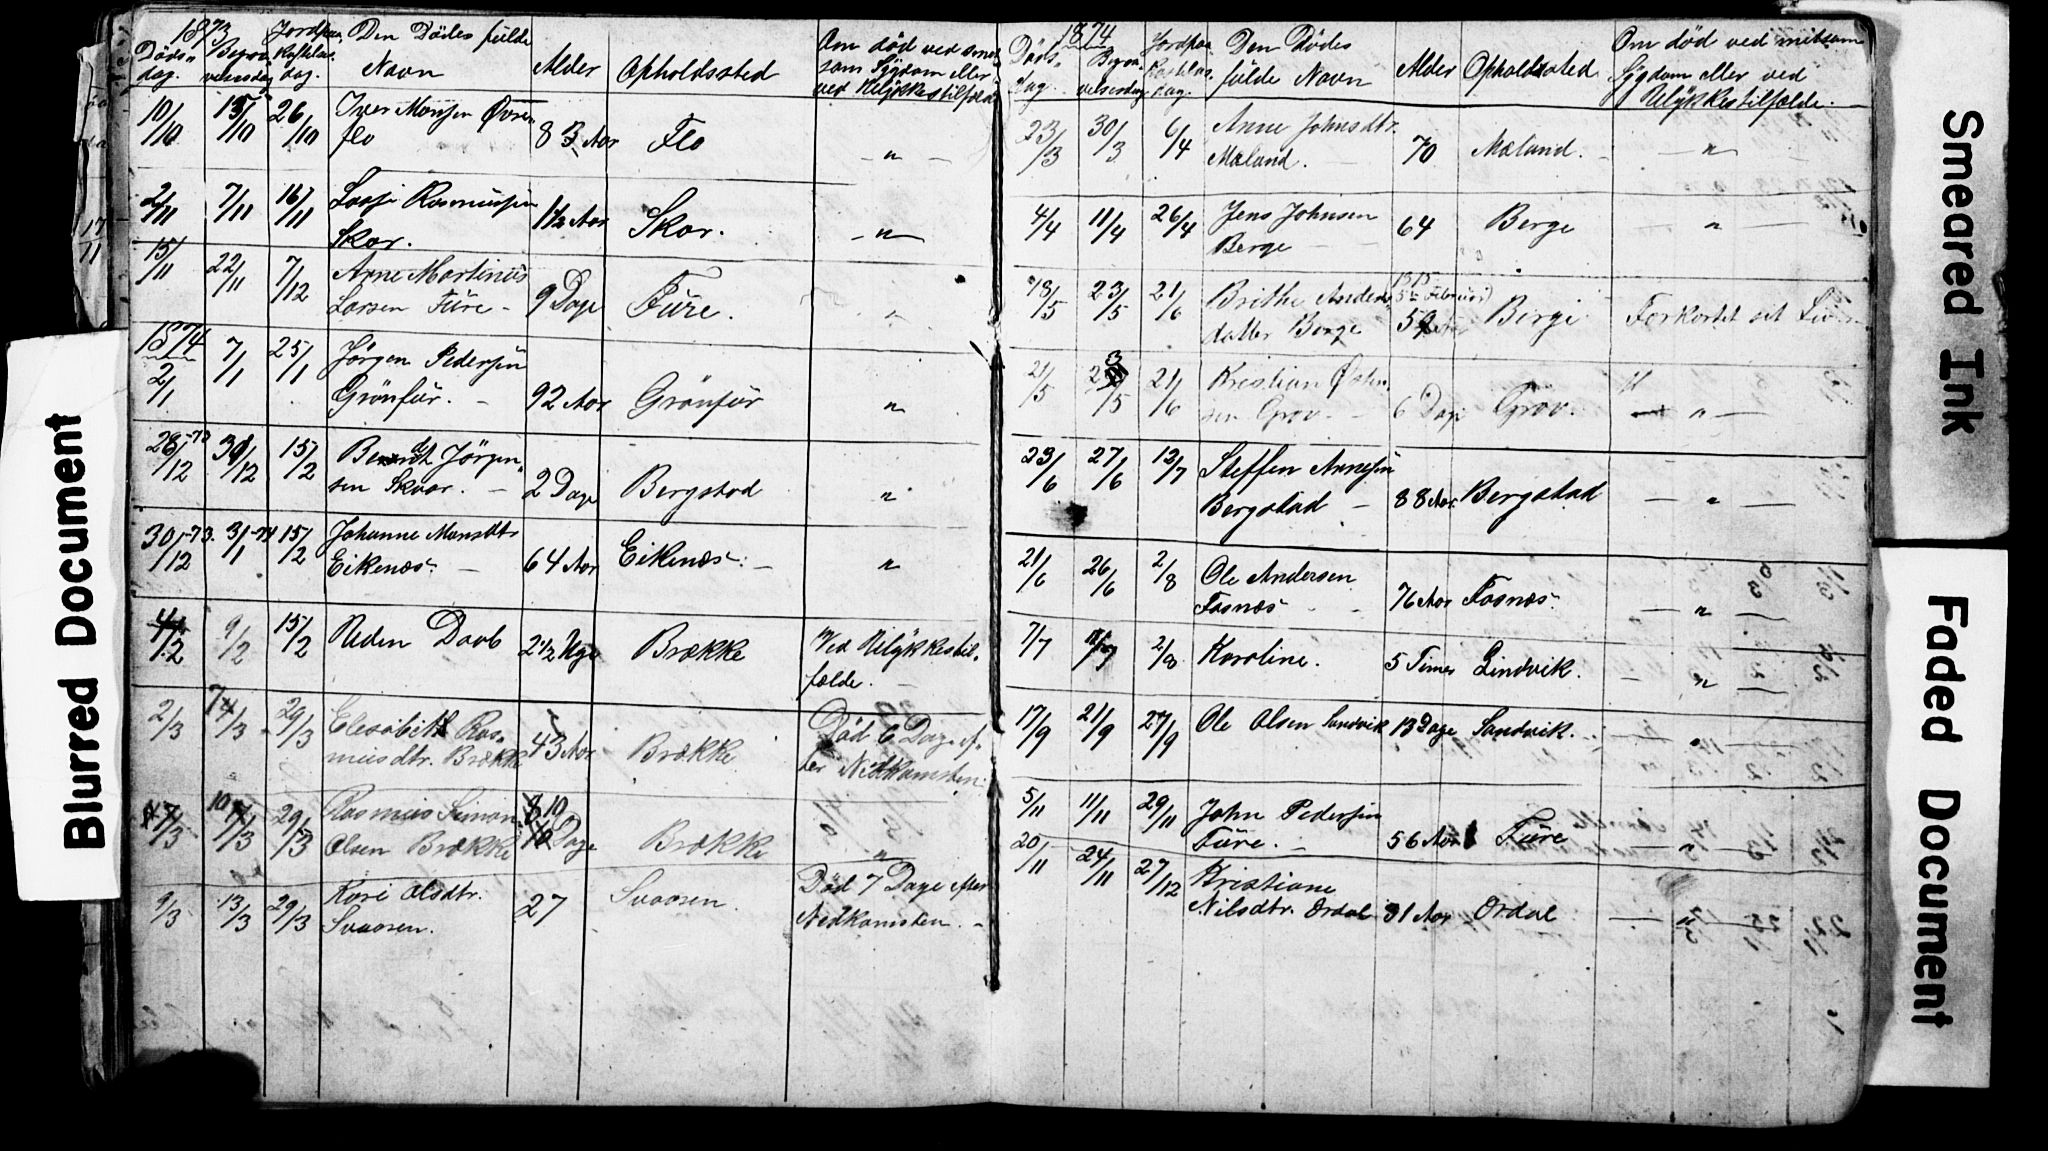 Blurred Document
1873
Døds-
dag.
Begra-
velsesdag
Jordpaa-
kastelses
dag.
Den Dødes fulde
Navn
Alder
Opholdssted
Om død ved smit-
som Sygdom eller
ved Ulykkestilfælde
10/10 15/10 26/10 Iver Monsen Øvre-
flo 83 Aar Flo - " -
2/11 7/11 16/11 Rasmussen
Skar. 1 1/2 Aar Skar. - " -
15/11 22/11 7/12 Arne Martinus
Larsen Fure - 9 Dage Fure. "
1874
2/1 7/1 25/1 Jørgen Pedersen
Grönfur. - 92 Aar Grönfur "
28/12 -73 30/12 15/2 Berndt Jørgen-
sen Skaar. - 2 Dage Bergstad "
30/12 -73. 3/1 -74 15/2 Johanne Monsdtr
Eikenæs. - 64 Aar Eikenæs. - "
4/2 9/2 15/2 Uden Daab 2 1/2 Uge Brække Ved Ulykkestil-
fælde. -
2/3 7/3 29/3 Elesabeth Ras-
musdtr. Brække 43 Aar Brække Død 6 Dage ef-
ter Nedkomsten.
/3 10/3 29/3 Rasmus Simon
Olsen Brække 10 Dage Brække "
9/3 13/3 29/3 Kari Olsdtr.
Svaasen. 27 Svaasen. Død 7 Dage efter
Nedkomsten. -
1874
Døds-
dag.
Begra-
velsesdag
Jordpaa-
kastelses
dag.
Den Dødes
fulde Navn
Alder
Opholdssted
Om død ved smitsom
Sygdom eller ved
Ulykkestilfælde.
23/3 30/3 6/4 Anne Johnsdtr.
Mæland. - 70 Mæland. - " -
4/4 11/4 26/4 Jens Johnsen
Berge - 64 Berge - " -
18/5 23/5 21/6 Brithe Anders
datter Berge 59 Berge Forkortet sit Liv
21/5 23/5 21/6 Kristian
sen Grov. - 6 Dage Grov. - " -
23/6 27/6 12/7 Steffen Arnesen
Bergstad - 88 Aar Bergstad - " -
21/6 26/6 2/8 Ole Andersen
Fosnæs - 76 Aar Fosnæs. - " -
7/7 11/7 2/8 Karoline. 5 Timer Lindvik. - " -
17/9 21/9 27/9 Ole Olsen Sandvik 13 Dage Sandvik. - " -
5/11 11/11 29/11 John Pedersen
Fure. - 56 Aar Fure - " -
20/11 24/11 27/12 Kristiane
Nilsdtr. Ordal 31 Aar Ordal - " -
Smeared Ink
Faded Document